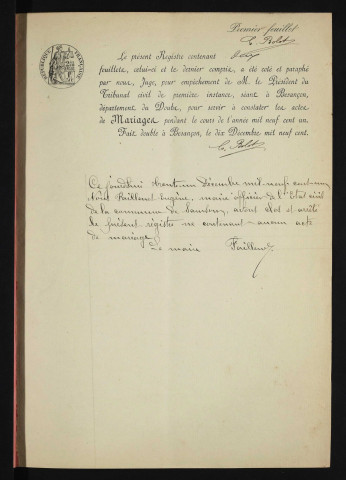 Premier feuillet
Le présent Registre contenant
feuillets, celui-ci et le dernier compris, a été coté et paraphé
par nous, Juge, pour empêchement de M. le Président du
Tribunal civil de première instance, séant à Besançon,
département du Doubs, pour servir à constater les actes
de Mariages pendant le cours de l'année mil neuf cent un.
Fait double à Besançon, le dix Décembre mil neuf cent.
Ce jourd'hui trente un Décembre mil neuf cent un
Nous Eugène, maire officier de l'Etat civil
de la commune de avons clos et arrêté
le présent registre ne contenant aucun acte
de mariage
Le maire
RÉPUBLIQUE FRANÇAISE